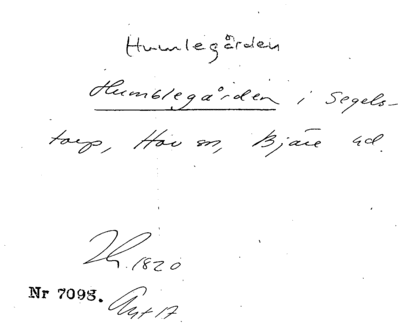 Humlegården
Humblegården i Segels-
torp, Hov sn, Bjäre hd.
1820
Nr 7093.